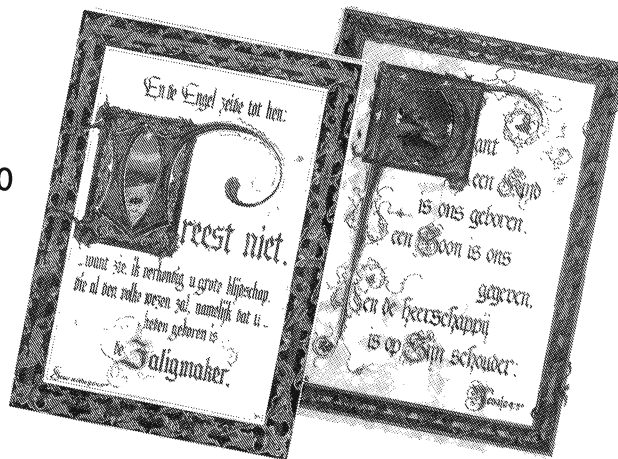 0
En de Engel zeide tot hen:
Vreest niet.
want zie, ik verkondig u grote blijdschap,
die al den volke wezen zal, namelijk dat u
heden geboren is
de Zaligmaker.
Want
een Kind
is ons geboren,
een Zoon is ons
gegeven,
en de heerschappij
is op Zijn schouder: